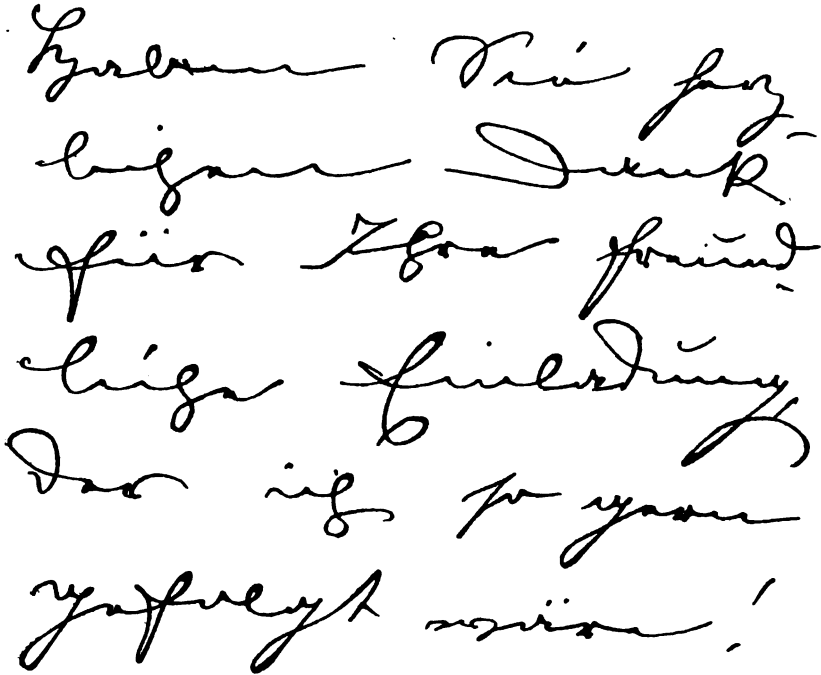 Haben Sie herz-
lichen Dank
für Ihre freund-
liche Einladung
der ich so gern
gefolgt wäre!